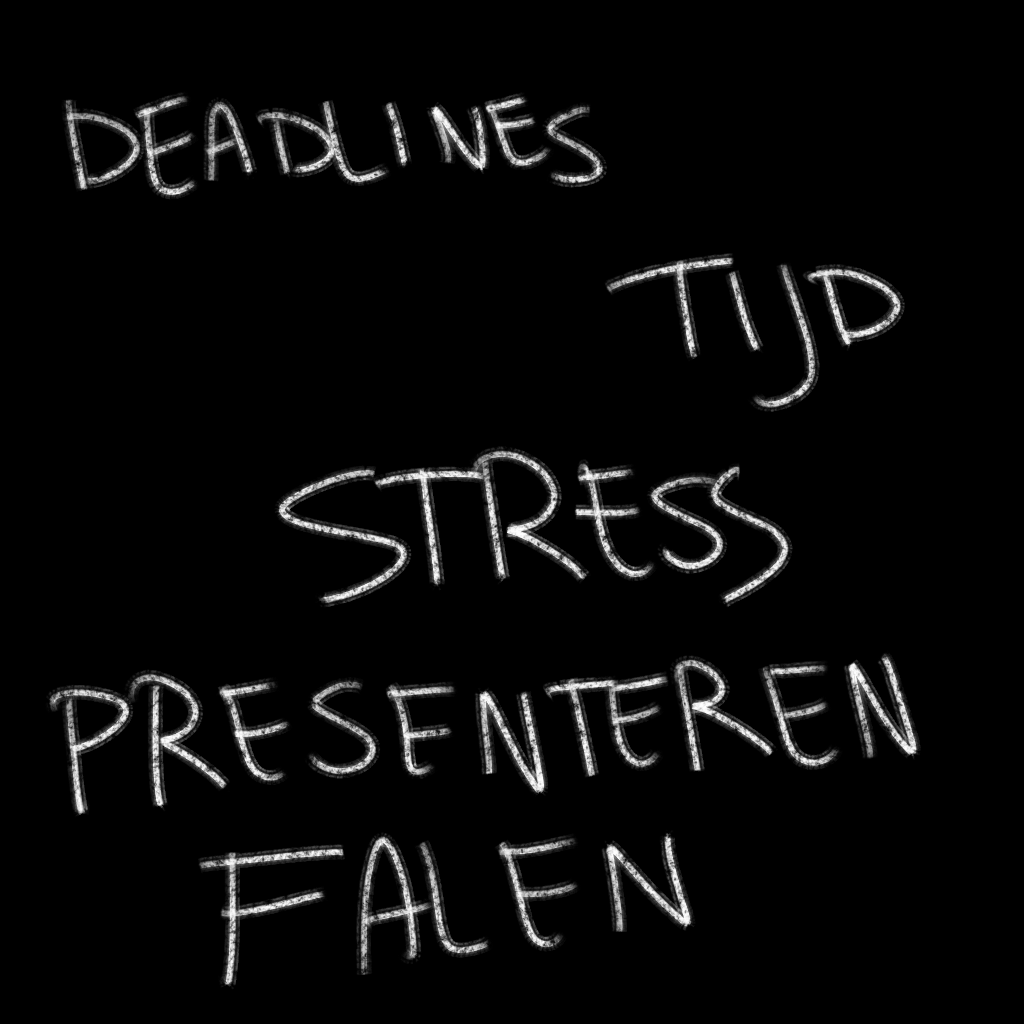 DEADLINES
TIJD
STRESS
PRESENTEREN
FALEN